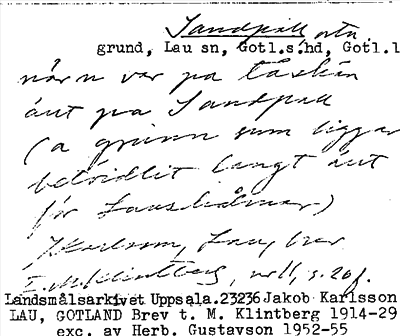 Sandpall ortn.
grund, Lau sn, Gotl.s.hd, Gotl.l
när n var pa
åut pa Sandpall
(a grunn sum liggar
langt åut
för Lausholmar)
J Karlsson, Lau, brev
t. M. Klintberg, s. 20f.
Landsmålsarkivet Uppsala.23236 Jakob Karlsson
LAU, GOTLAND Brev t. M. Klintberg 1914-29
exc. av Herb. Gustavson 1952-55